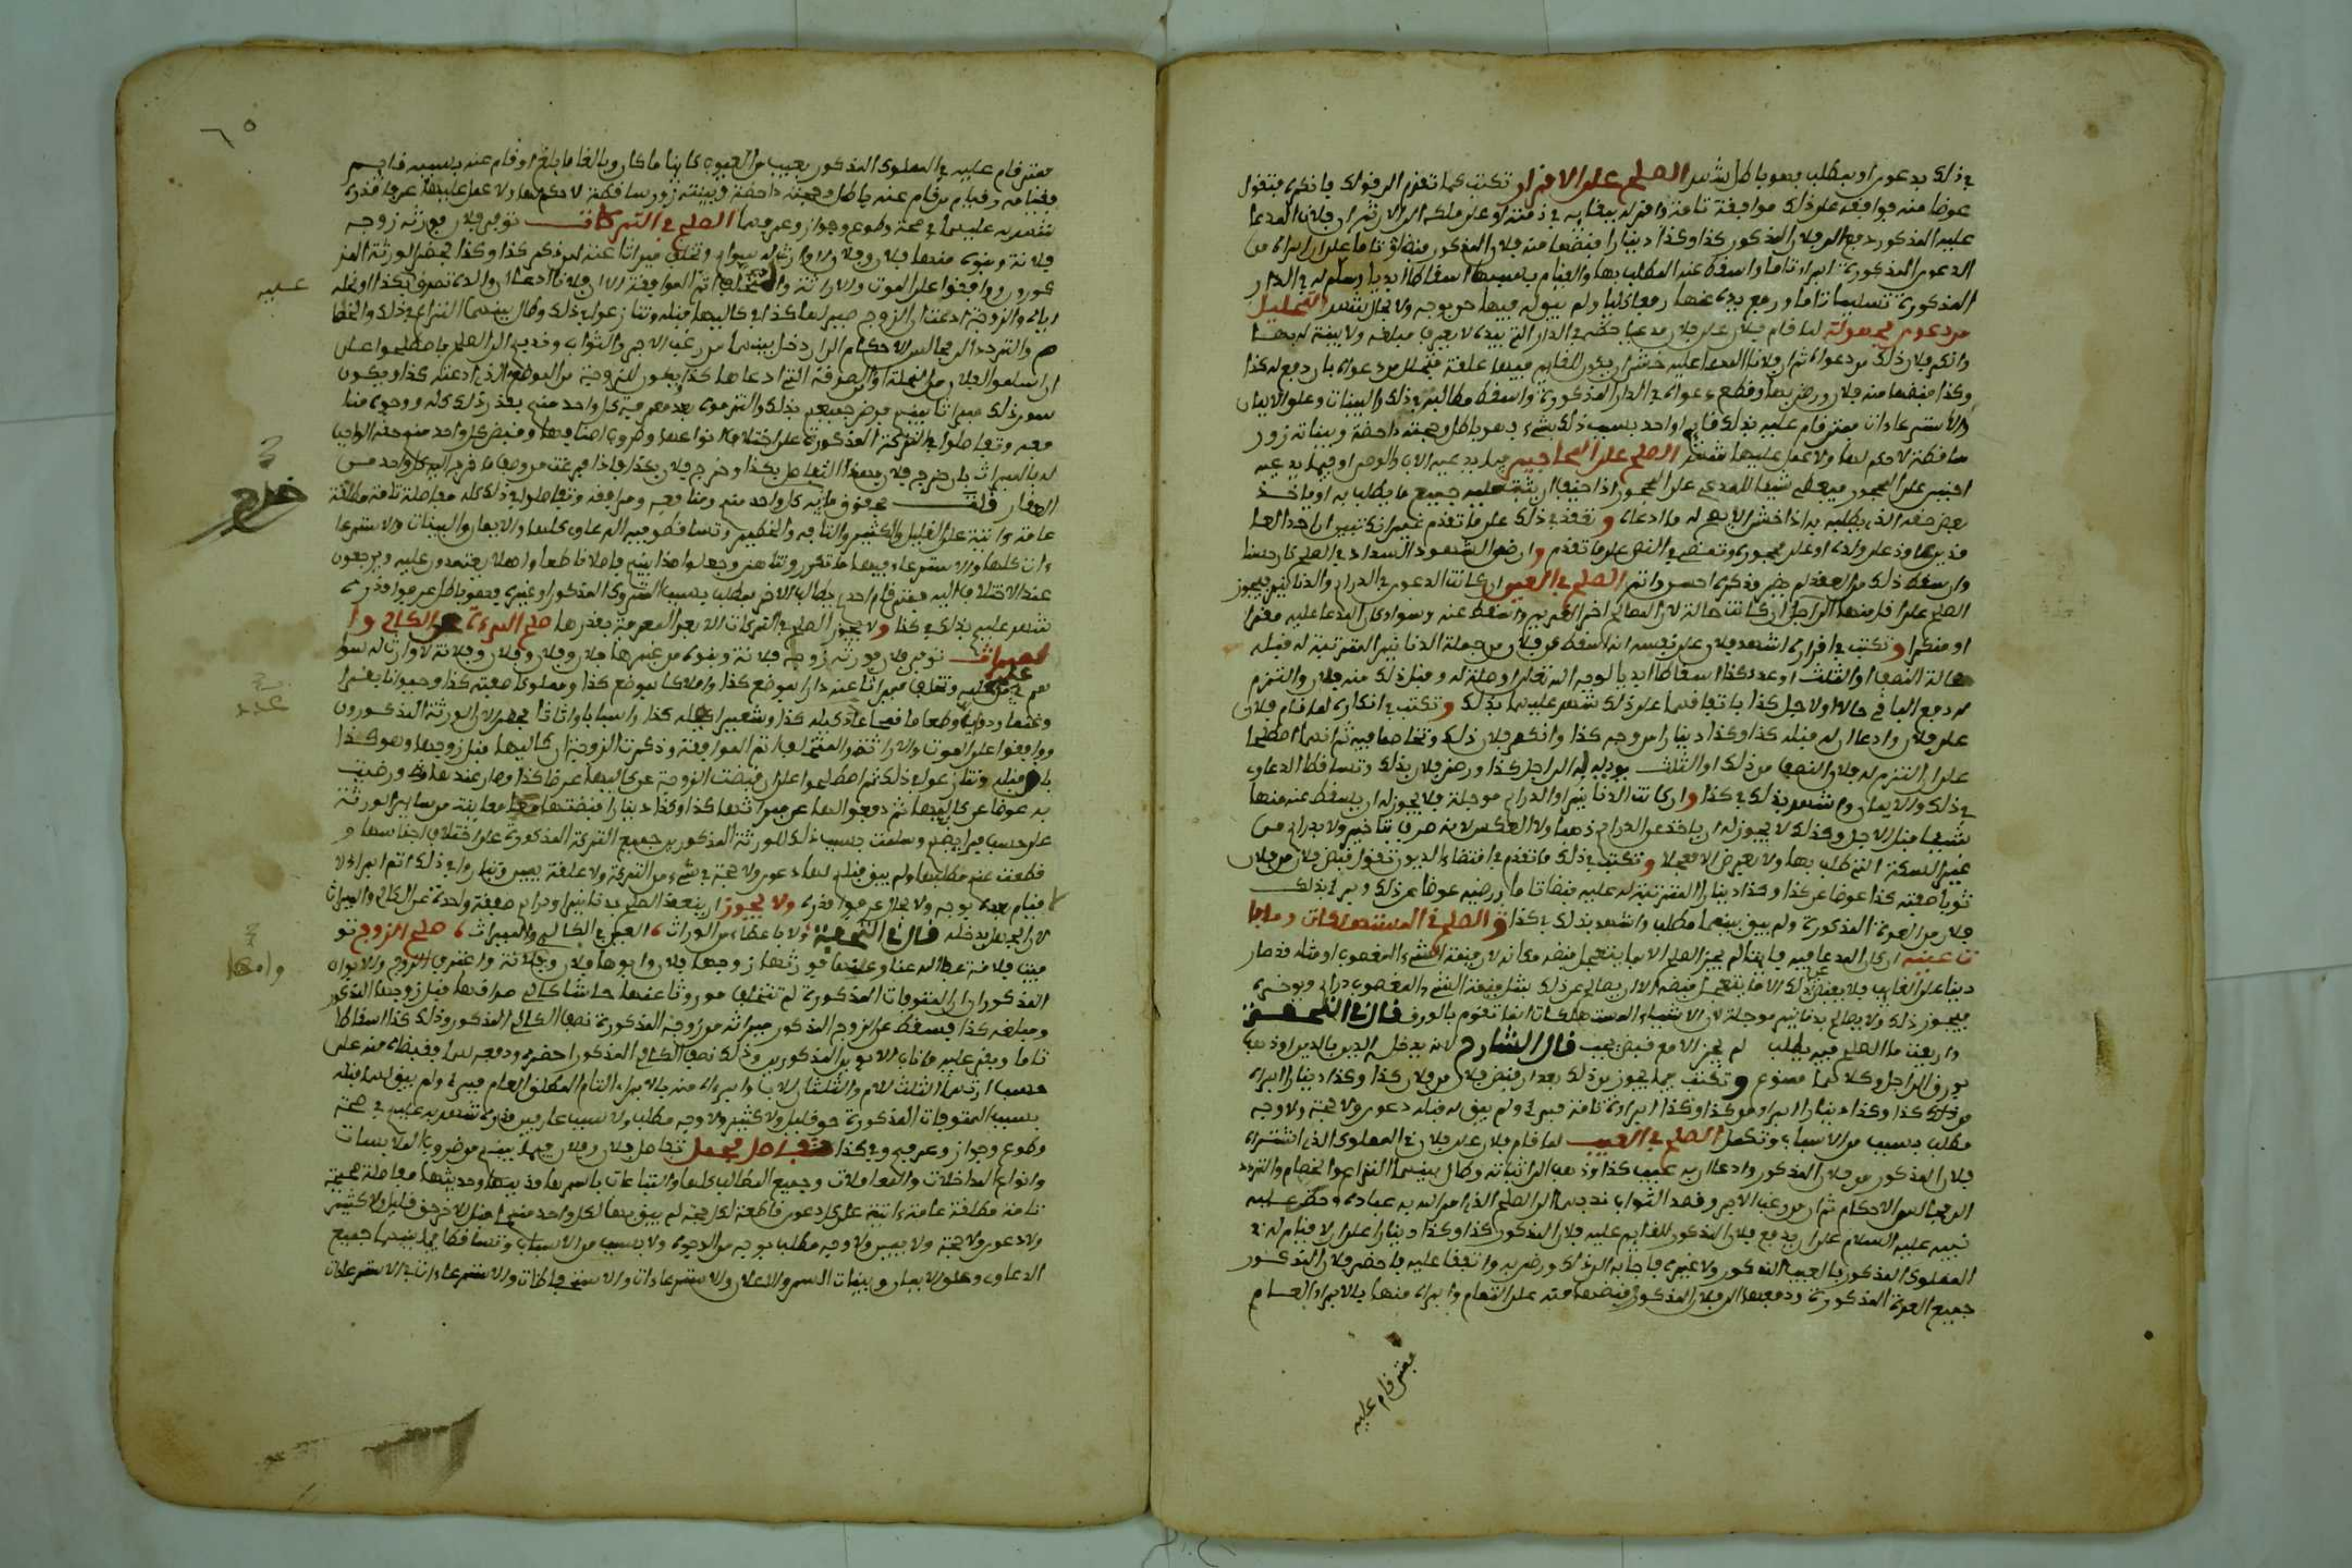 في ذلك بدعوى او بمطلب فهو باطل شهد الصلح على الاقرار تكتب كما تقدم الى قولك فانكره فتقول
عوضا منه فوافقه على ذلك موافقة تامة واقر له ببقايه في ذمته او على ملكه الى الان ثم ان فلان المدعا
عليه المذكور دفع الى فلان المذكور كذا وكذا دينارا قبضها منه فلان المذكور قبضا تاما على ان ابراه من
الدعوى المذكورة ابراء تاما واسقط عنه المطلب بها والقيام بسببها اسقاطا ابديا وسلم له في الدار
المذكورة تسليما تاما ورفع يده عنها رفعا كليا ولم يبق له فيها حق بوجه ولا بحال شهد التحليل
من دعوى مجهولة لما قام فلان على فلان مدعيا حظه في الدار التي بيده لا يعرف مبلغه ولا بينة له بها
وانكر فلان ذلك من دعواه ثم ان فلانا المدعا عليه خشى ان يكون للقايم فيها علقة فتحلل من دعواه بان دفع له كذا
وكذا قبضها منه فلان ورضي بها وقطع دعواه في الدار المذكورة واسقط مطالبته في ذلك والبينات وعلو الايمان
والاسترعاءات فمتى قام عليه بذلك قايم او احد بسبب ذلك بشيء فهو باطل وحجته داحضة وبيناته زور
ساقطة لا حكم لها ولا عمل عليها شهد الصلح على المحاجير فيما يدعيه الاب والوصي او فيما يدعيه
اجنبي على المحجور فيعطي شيئا للمدعي على المحجور اذا خيف ان يثبت عليه جميع ما يطلب به او ياخذ
بعض حقه الذي يطلبه به اذا خشي الا يصح له ما ادعاه وتعقد في ذلك على ما تقدم غير انك تبين ان احد المصا
وان سقط ذلك من العقد لم يضر وذكره احسن واتم الصلح في العين ان كانت الدعوى في الدراهم والدنانير فيجوز
الصلح على اقل منها الى اجل ان كانت حالة لان المصالح اخر الغريم واسقط عنه وسواء كان المدعا عليه مقرا
او منكرا وتكتب في اقراره اشهد فلان على نفسه انه اسقط عن فلان من جملة الدنانير المترتبة له قبله
حالة النصف او الثلث او عدد كذا اسقاطا ابديا لوجه الله تعالى او صلة له وقبل ذلك منه فلان والتزم
له دفع الباقي حالا او لاجل كذا باتفاقهما على ذلك شهد عليهما بذلك وتكتب في انكاره لما قام فلان
على فلان وادعا ان له قبله كذا وكذا دينارا من وجه كذا وانكر فلان ذلك وتخاصما فيه ثم انهما اصطلحا
على ان التزم له فلان النصف من ذلك او الثلث يوديه له الى اجل كذا ورضي فلان بذلك وتساقطا الدعاوى
في ذلك والايمان واشهد بذلك في كذا وان كانت الدنانير او الدراهم موجلة فلا يجوز له ان يسقط عنه منها
شيئا قبل الاجل وكذلك لا يجوز له ان ياخذ عن الدراهم ذهبا ولا العكس لانه صرف بتاخير ولا بدراهم من
غير السكة التي طلب بها ولا بعرض الا معجلا وتكتب في ذلك ما تقدم في اقتضاء الديون تقول قبض فلان من فلان
ثوبا صفته كذا عوضا عن كذا وكذا دينارا المترتبة له عليه قبضا تاما ورضيه عوضا عن ذلك وبرئ بذلك
فلان من العدة المذكورة ولم يبق بينهما مطلب واشهد بذلك في كذا والصلح في المستهلكات وما با
ن عينه ان كان المدعا فيه فايتا لم يجز الصلح الا بما يتعجل قبضه مكانه لان قيمة الشيء المغصوب او مثله قد صار
دينا على الغايب فلا يعوض عن ذلك الا ما يتعجل قبضه الا ان يصالح عن ذلك بمثل قيمة الشيء المغصوب دراهم ويوخره
فيجوز ذلك ولا يصالح بدنانير موجلة لان الاشياء المستهلكات انما تقوم بالورق قال في التحفة
وان يفت ما الصلح فيه يطلب لم يجز الا مع قبض يجب قال الشارح لانه يدخل الدين بالدين او ذهب
بورق الى اجل وكلاهما ممنوع وتكتب فيما يجوز من ذلك بعد ان قبض فلان من فلان كذا وكذا دينارا ابراه
من ذلك كذا وكذا دينارا ابراه من كذا وكذا ابراءة تامة فبرئ ولم يبق له قبله دعوى ولا حجة ولا وجه
مطلب بسبب من الاسباب وتكمل الصلح في العيب لما قام فلان على فلان في المملوك الذي اشتراه
فلان المذكور من فلان المذكور وادعا ان به عيب كذا وذهب الى اثباته وطال بينهما النزاع والخصام والتردد
الى مجالس الاحكام ثم ان من رغب الاجر وقصد الثواب ندبهما الى الصلح الذي امر الله به عباده وحظ عليه
نبيه عليه السلام على ان يدفع فلان المذكور للقايم عليه فلان المذكور كذا وكذا دينارا على ان لا قيام له في
المملوك المذكور بالعيب المذكور ولا غيره فاجابه الى ذلك ورضي به واتفقا عليه فاحضر فلان المذكور
جميع العدة المذكورة ودفعها الى فلان المذكور قبضها منه على التمام وابراه منها بالابراء العام
فمتى قام عليه
٦٥
فمتى قام عليه في المملوك المذكور بعيب من العيوب كاينا ما كان وبالغا ما بلغ او قام عنه بسببه قايم
فقيامه وقيام من قام عنه باطل وحجته داحضة وبينته زور ساقطة لا حكم لها ولا عمل عليها عرفا قدره
شهد به عليهما في صحة وطوع وجواز وعرفهما الصلح في التركات توفي فلان فورثه زوجه
فلانة وبنوه منها فلان وفلان لا وارث له سواهم وتخلف ميراثا عنه لهم ذكر كذا وكذا بمحضر الورثة المذ
كورون ووافقوا على الموت والاراثة والمتخلف اتم الموافقة الا ان فلانا ادعا ان والده تصدق بكذا او نحله
اياه والزوجة ادعت ان الزوج صير لها كذا في كاليها قبله وتنازعوا في ذلك وطال بينهم النزاع في ذلك والخصا
عليه
م والتردد الى مجالس الاحكام الى ان دخل بينهم من رغب الاجر والثواب وندبهم الى الصلح فاصطلحوا على
ان اسلموا لفلان من النحلة او الصدقة التي ادعاها كذا يكون للزوجة من الموضع الذي ادعته كذا ويكون
سوى ذلك ميراثا بينهم فرضي جميعهم بذلك والتزموه بعد معرفة كل واحد منهم بقدر ذلك كله ووجوه منا
فعه وتفاصلوا في التركة المذكورة على اختلاف انواعها وضروب اصنافها وقبض كل واحد منهم حقه الواجب
له بالميراث بان خرج فلان بهذا التفاصل بكذا وخرج فلان بكذا فاذا فرغت من وصف ما خرج اليه كل واحد من
العقار قلت بحقوق ما به كل واحد منهم ومنافعه ومرافقه وتفاصلوا في ذلك كله مفاصلة تامة مطلقة
خرج
عامة واتية على القليل والكثير والتافه والخطير وتساقطوا فيه الدعاوى كلها والايمان والبينات والاسترعا
ءات كلها والاسترعاء فيها ما تكرر وتناهى وجعلوا هذا بينهم فاصلا قاطعا واصلا يعتمدون عليه ويرجعون
عند الاختلاف اليه فمتى قام احدهم يطالب الاخر بمطلب بسبب المتروك المذكور او غيره فهو باطل عرفوا قدره
شهد عليهم بذلك في كذا ولا يجوز الصلح في التركات الا بعد المعرفة بقدرها صلح المرءة عن الكالئ وا
لميراث توفي فلان فورثه زوجه فلانة وبنوه من غيرها فلان وفلان وفلانة لا وارث له سوا
وغنما ودوابا وطعاما قمحا عدد كيله كذا وشعيرا كيله كذا واسبابا واثاثا بمحضر الان الورثة المذكورون
ووافقوا على الموت والاراثة والمتخلف اتم الموافقة وذكرت الزوجة ان كاليها قبل زوجها وهو كذا
باق قبله وتنازعوا في ذلك ثم اصطلحوا على ان قبضت الزوجة عن كاليها عرضا كذا وصار عندها ورضيت
به عوضا عن كاليها ثم دفعوا لها عن ميراثها كذا وكذا دينارا قبضتها معاينة من ساير الورثة
على حسب ميراثهم وسلمت بسبب ذلك للورثة المذكورين جميع التركة المذكورة على اختلاف اجناسها و
قطعت عنهم مطلبها ولم يبق قبلهم لها دعوى ولا حجة في شيء من التركة ولا علقة يمين وتباروا في ذلك اتم ابراء لا
قيام بعده بوجه ولا بحال عرفوا قدره ولا يجوز ان ينعقد الصلح بدنانير ودراهم صفقة واحدة عن الكالئ والميراث
لان الجهل يدخله قال في التحفة ولا باعطاء من الوراث العين في الكالي والميراث صلح الزوج تو
فيت فلانة عفا الله عنا وعنها فورثها زوجها فلان وابوها فلان وفلانة واعترف الزوج والابوان
وامها
المذكوران ان المتوفات المذكورة لم تتخلف موروثا عنها حاشا كالي صداقها قبل زوجها المذكور
ومبلغه كذا فيسقط عن الزوج المذكور ميراثه من زوجه المذكورة نصف الكالي المذكور وذلك كذا اسقاطا
تاما وبقي عليه ما ناب الابوين المذكورين وذلك نصف الكالي المذكور احضره ودفعه لهما وقبضاه منه على
حسب ارثهما الثلث للام والثلثان للاب وابراه منه بالابراء التام المطلق العام فبرئ ولم يبق لهما قبله
بسبب المتوفات المذكورة حق قليل ولا كثير ولا وجه مطلب ولا سبب عارفين قدره شهد به عليهم في صحة
وطوع وجواز وعرفهم وفي كذا تفاصل مجمل تفاصل فلان وفلان فيما بينهم من ضروب الملابسات
وانواع المداخلات والمعاملات وجميع المطالب كلها والتباعات باسرها قديمها وحديثها مفاصلة صحيحة
تامة مطلقة عامة واتية على كل دعوى قاطعة لكل حجة لم يبق بها لكل واحد منهما قبل الاخر حق قليل ولا كثير
ولا دعوى ولا حجة ولا يمين ولا وجه مطلب بوجه من الوجوه ولا بسبب من الاسباب وتساقطا فيما بينهما جميع
الدعاوى وعلو الايمان وبينات السر والاعلان والاسترعاءات والاستحفاظات والاسترعاءات في الاسترعاءات